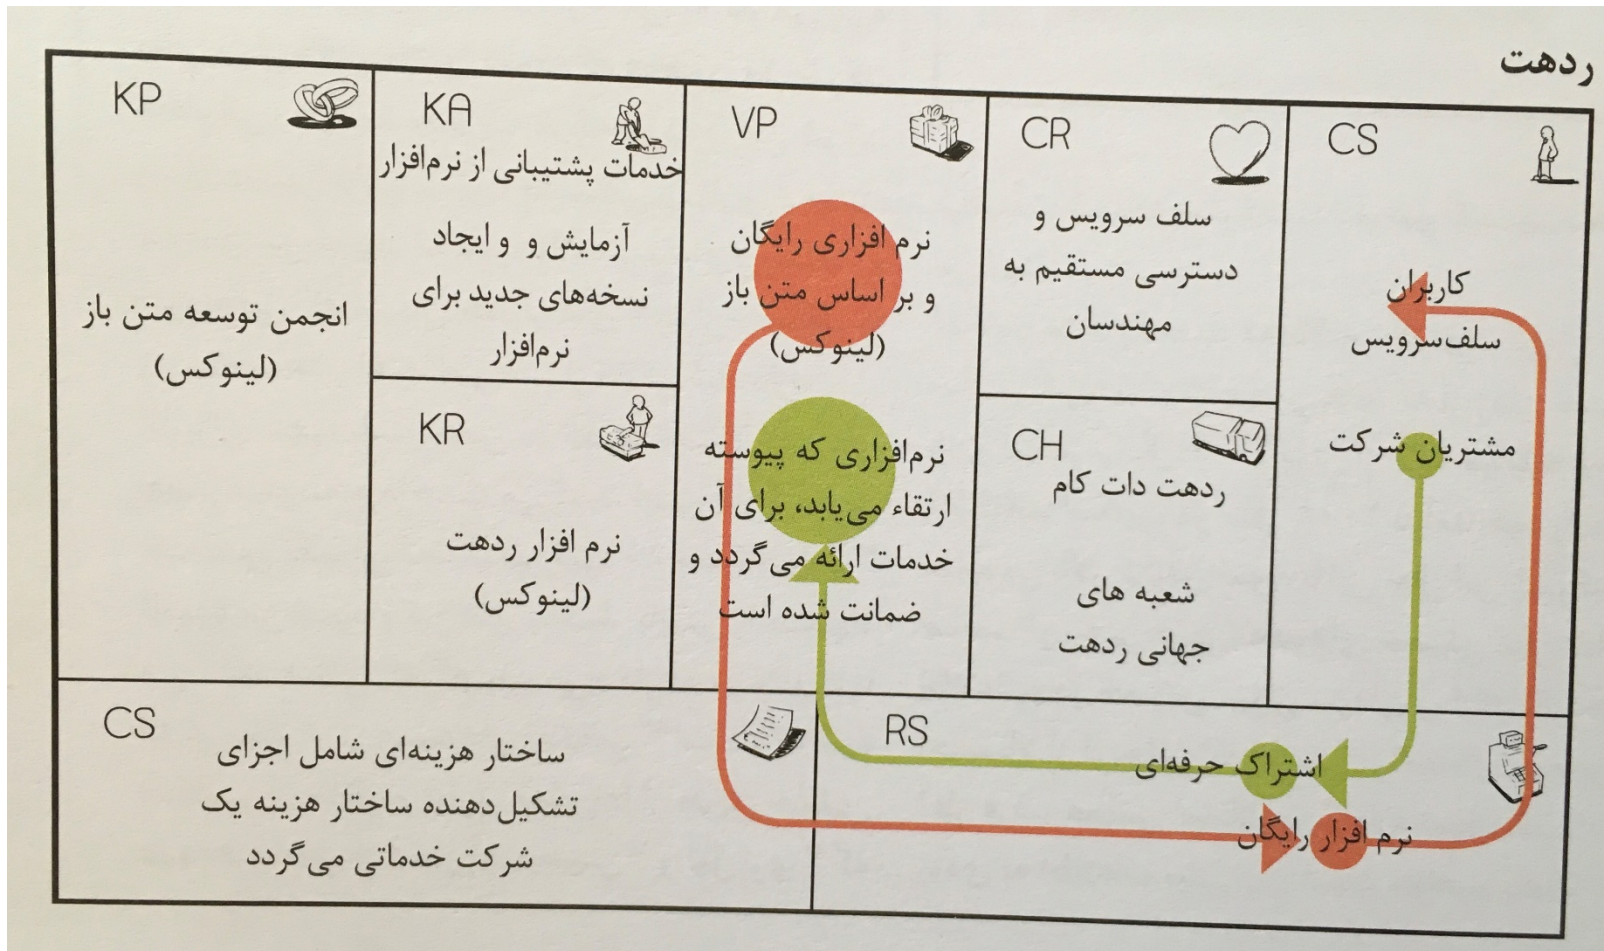 ردهت
KP
انجمن توسعه متن باز
(لینوکس)
KA
خدمات پشتیبانی از نرم‌افزار
آزمایش و و ایجاد
نسخه‌های جدید برای
نرم‌افزار
KR
نرم افزار ردهت
(لینوکس)
VP
نرم افزاری رایگان
و بر اساس متن باز
(لینوکس)
نرم‌افزاری که پیوسته
ارتقاء می‌یابد، برای آن
خدمات ارائه می‌گردد و
ضمانت شده است
CR
سلف سرویس و
دسترسی مستقیم به
مهندسان
CH
ردهت دات کام
شعبه های
جهانی ردهت
CS
کاربران
سلف‌سرویس
مشتریان شرکت
CS
ساختار هزینه‌ای شامل اجزای
تشکیل‌دهنده ساختار هزینه یک
شرکت خدماتی می‌گردد
RS
اشتراک حرفه‌ای
نرم افزار رایگان